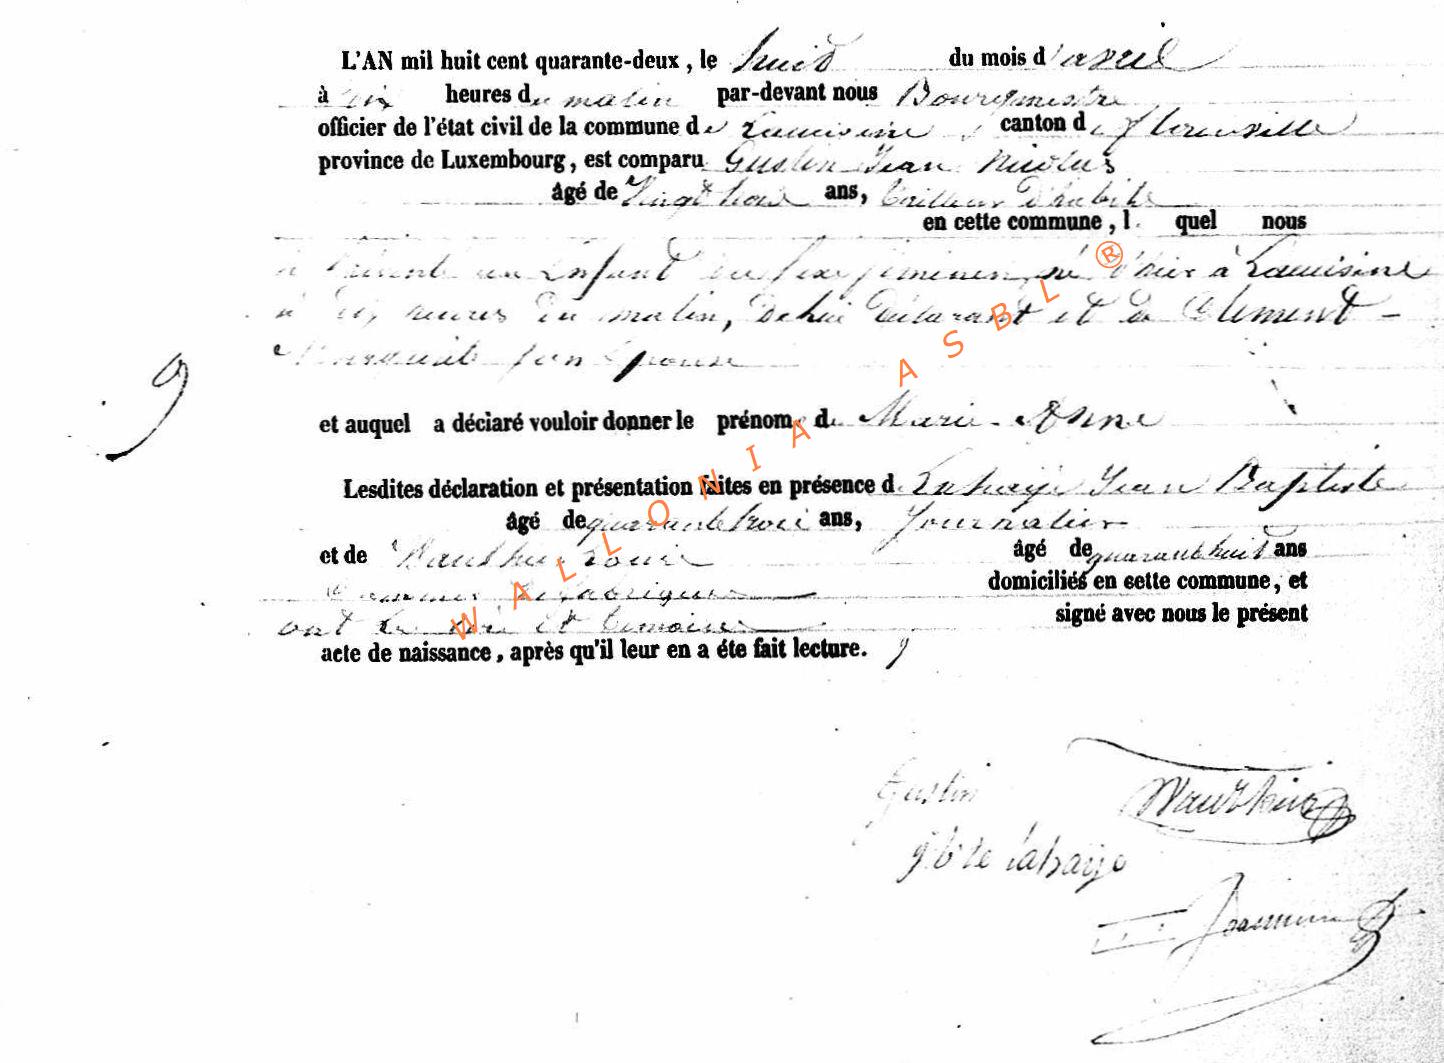 L'AN mil huit cent quarante-deux, le huit du mois d'avril
à dix heures du matin par-devant nous Bourgmestre
officier de l'état civil de la commune de Lacuisine canton de Florenville
province de Luxembourg, est comparu Gustin Jean Nicolas
âgé de Vingt trois ans, tailleur d'habits
en cette commune, l quel nous
a présenté un Enfant du sexe féminin né d'hier à Lacuisine
à dix heures du matin, de lui déclarant et de Clement
son épouse
9
et auquel a déclaré vouloir donner le prénom de Marie-Anne
Lesdites déclaration et présentation faites en présence d Lahaije Jean Baptiste
âgé de quarante trois ans, Journalier
et de Wauthier Louis âgé de quarante huit ans
domiciliés en cette commune, et
ont le et témoins signé avec nous le présent
acte de naissance, après qu'il leur en a éte fait lecture.
WALLONIA ASBL ®
Gustin Wauthier
jbte Lahaije